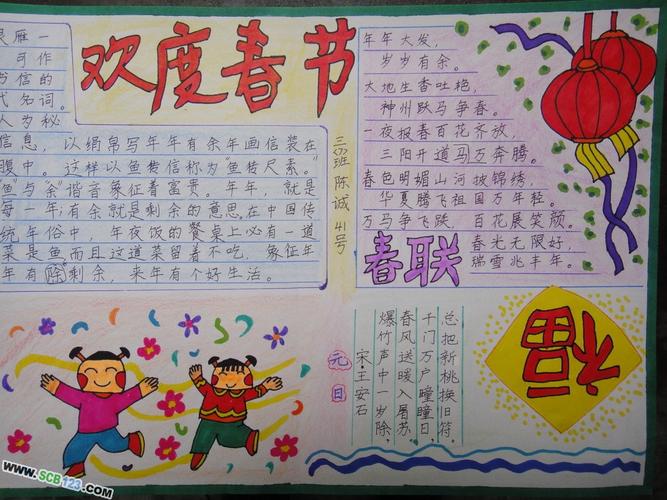 欢度春节
灵雁一
可作
书信的
代名词。
人为秘
信息，以绢帛写年年有余年画信装在
腹中。这样以鱼传信称为"鱼传尺素"。
鱼"与"余"谐音象征着富贵。年年，就是
每一年；有余就是剩余的意思，在中国传
统年俗中，年夜饭的餐桌上必有一道
菜是鱼而且这道菜留着不吃，象征年
年有除剩余，来年有个好生活。
三班陈诚41号
年年大发，
岁岁有余。
大地生香吐艳，
神州跃马争春。
一夜报春百花齐放，
三阳开道马万奔腾。
春色明媚山河披锦绣，
华夏腾飞祖国万年轻。
万马争飞跃，百花展笑颜。
春光无限好，
瑞雪兆丰年。
春联
福
元日
宋·王安石
爆竹声中一岁除，
春风送暖入屠苏。
千门万户曈曈日，
总把新桃换旧符。
www.SCB123.com